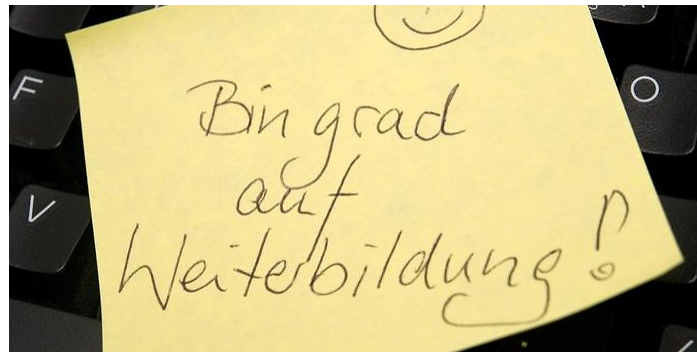 Bin grad
auf
Weiterbildung!
F
O
V